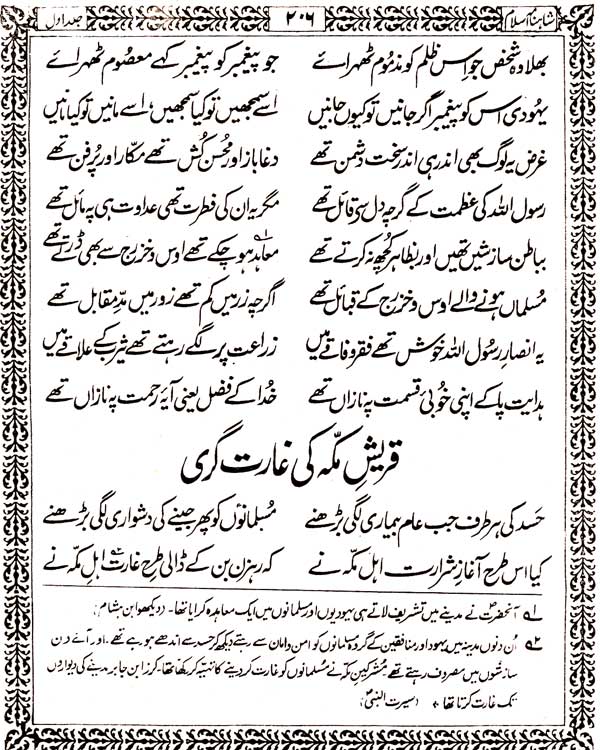 شاہنامۂ اسلام ۲۰۶ جلد اول
بھلا وہ شخص جو اس ظلم کو مذموم ٹھہرائے جو پیغمبر کو پیغمبر کہے معصوم ٹھہرائے
یہودی اس کو پیغمبر اگر جانیں تو کیوں جانیں اسے سمجھیں تو کیا سمجھیں؛ اسے مانیں تو کیا مانیں
غرض یہ لوگ بھی اندر ہی اندر سخت دشمن تھے دغا باز اور محسن کش تھے مکار اور پرفن تھے
رسول اللہ کی عظمت کے گرچہ دل سے قائل تھے مگر یہ ان کی فطرت تھی عداوت ہی پہ مائل تھے
بباطن سازشیں تھیں اور بظاہر کچھ نہ کرتے تھے معاہد ہو چکے تھے اوس و خزرج سے بھی ڈرتے تھے ؎۱
مسلماں ہونے والے اوس و خزرج کے قبائل تھے اگرچہ زر میں کم تھے زور میں مدِ مقابل تھے
یہ انصارِ رسول اللہ خوش تھے فقر و فاقے میں زراعت پر لگے رہتے تھے یثرب کے علاقے میں
ہدایت پا کے اپنی خوبیٔ قسمت پہ نازاں تھے خدا کے فضل یعنی آیۂ رحمت پہ نازاں تھے
قریشِ مکہ کی غارت گری
حسد کی ہر طرف جب عام بیماری لگی بڑھنے مسلمانوں کو پھر جینے کی دشواری لگی بڑھنے
کیا اس طرح آغازِ شرارت اہلِ مکہ نے کہ رہزن بن کے ڈالی طرحِ غارت اہلِ مکہ نے ؎۲
؎۱ آنحضرتؐ نے مدینے میں تشریف لاتے ہی یہودیوں اور مسلمانوں میں ایک معاہدہ کرایا تھا۔ (دیکھو ابن ہشام)
؎۲ ان دنوں مدینہ میں یہود اور منافقین کے گروہ مسلمانوں کو امن و امان سے رہتے دیکھ کر حسد سے اندھے ہو رہے تھے۔ اور آئے دن
سازشوں میں مصروف رہتے تھے۔ مشرکینِ مکہ نے مسلمانوں کو غارت کر دینے کا تہیّہ کر رکھا تھا۔ کرز ابن جابر مدینے کی دیواروں
تک غارت کرتا تھا ٭ (سیرت النبیؐ)